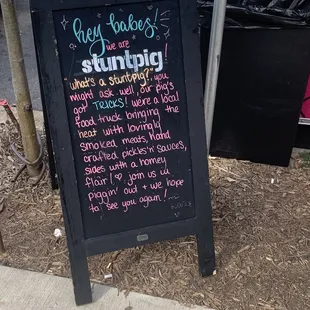 hey babes!
we are
stuntpig!
"what's a stuntpig?" you
might ask. well, our pig's
got TRICKS! we're a local
food truck bringing the
heat with lovingly
smoked meats, hand
crafted pickles 'n' sauces,
sides with a homey
flair! join us in
piggin' out + we hope
to see you again!